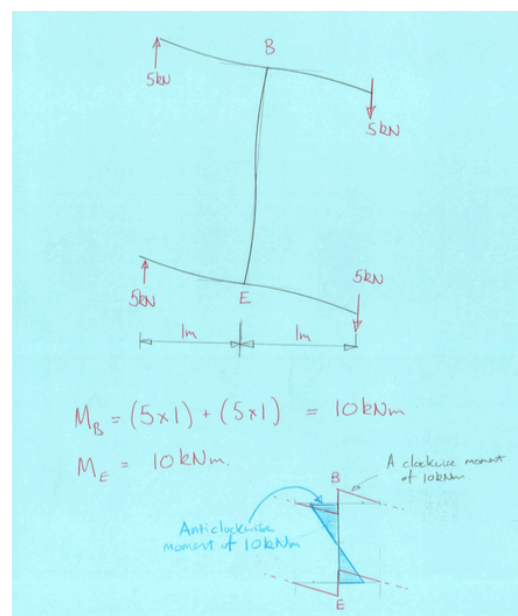 B
5kN
5kN
5kN
5kN
E
1m
1m
M_B = (5x1) + (5x1) = 10kNm
M_E = 10kNm.
A clockwise moment
of 10kNm
B
Anticlockwise
moment of 10kNm
E